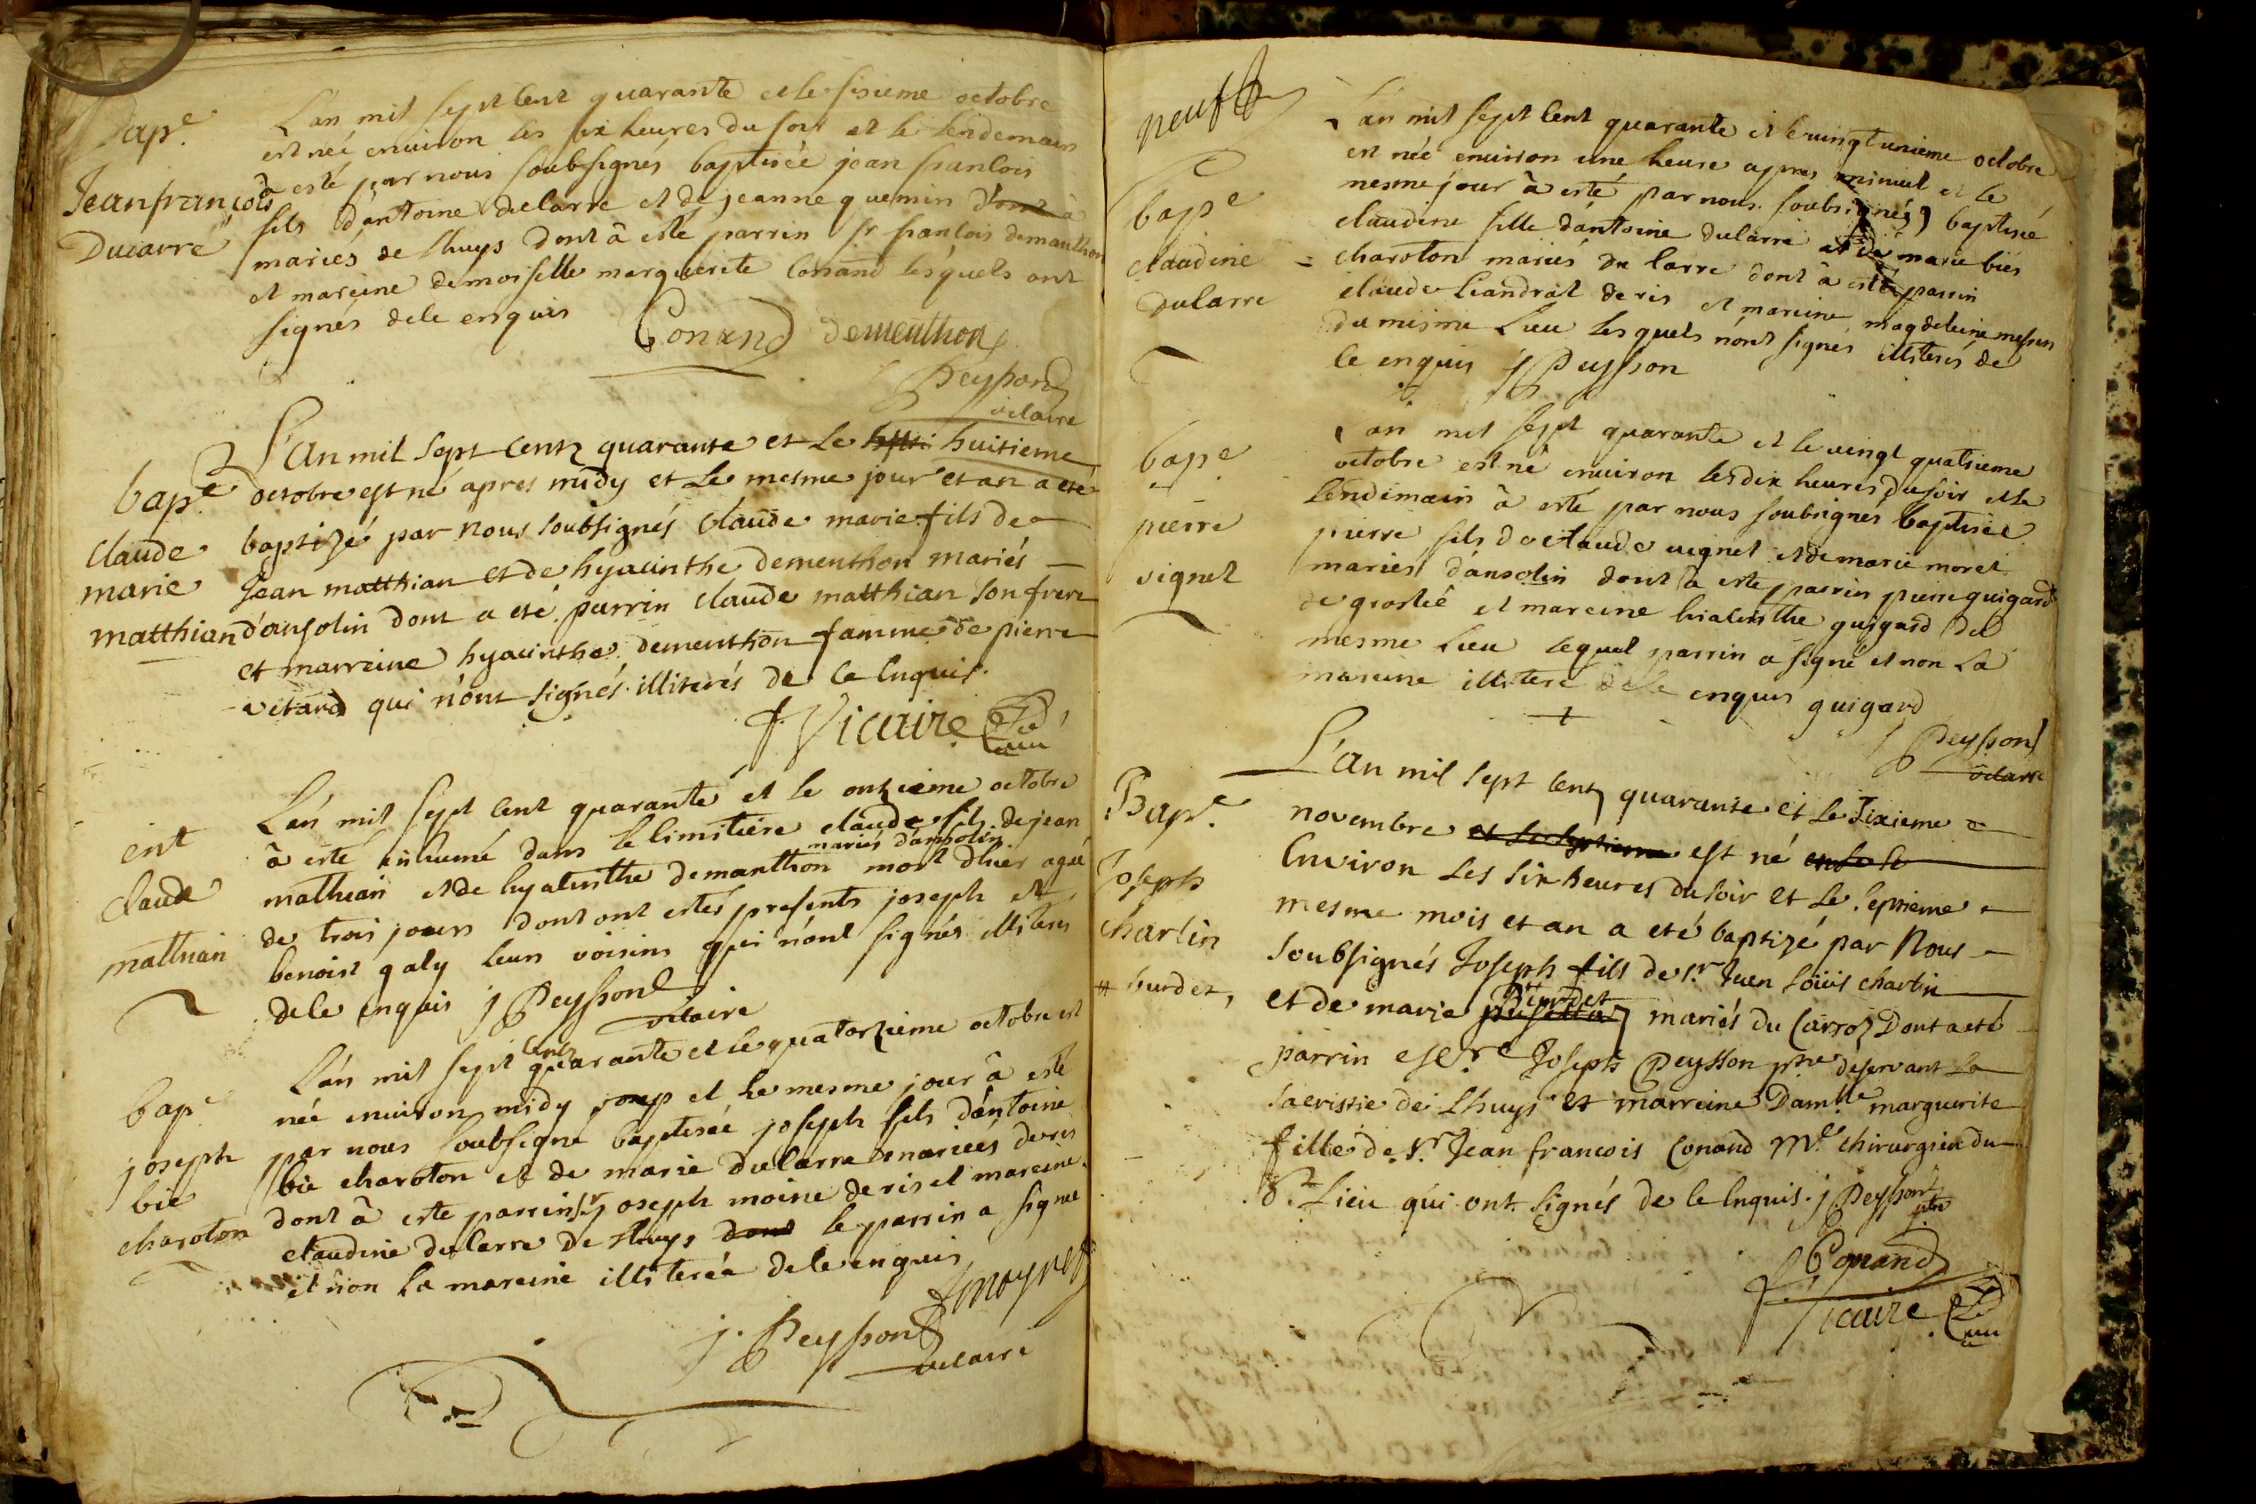 Bap.e
Jean francois
Ducarre
L'an mil sept cent quarante et le sixieme octobre
est neé environ les six heures du soir et le lendemain
à esté par nous soubsignés baptiseé jean francois
fils d'antoine ducarre et de jeanne quemin dont à
mariés de Lhuys dont à esté parrin sr francois demanthon
et mareine demoiselle marguerite Conand lesquels ont
signés de ce enquis
Conand dementhon
Peysson
vicaire
bap.e
claude
marie
matthian
L'an mil sept centz quarante et le huitieme
octobre est né apres midy et le mesme jour et an a eté
baptizé par nous soubsignés Claude marie fils de
Jean matthian et de hyacinthe dementhon mariés
d'ansolin dont a eté parrin claude matthian son frere
et marreine hyacinthe dementhon famme de pierre
vitard qui n'ont signés illiterés de ce Enquis.
Vicaire
ent
claude
mathian
L'an mil sept cent quarante et le onzieme octobre
à esté inhumé dans le cimitiere claude fils de jean
mariés d'ansolin
mathian et de hyacinthe demanthon mort d'hier agé
de trois jours dont ont estés presents joseph et
benoist galy leurs voisins qui n'ont signés illiterés
de ce enquis j Peysson
vicaire
bap.e
joseph
bie
charoton
cent
L'an mil sept quarante et le quatorzieme octobre est
née environ midy et le mesme jour à esté
par nous soubsigné baptiseé joseph fils d'antoine
bie charoton et de marie ducarre marieés de ris
dont à esté parrin sr joseph moine de ris et mareine
claudine ducarre de Lhuys dont le parrin a signé
et non la mareine illitereé de ce enquis
j. Peysson
vicaire
neuf
bap.e
claudine
ducarre
L'an mil sept cent quarante et le vingtunieme octobre
est née environ une heure apres minuit et le
mesme jour à esté par nous soubsignés baptiseé
claudine fille d'antoine ducarre et de marie bie
charoton mariés du carre dont à esté parrin
claude Liandrat de ris et mareine magdeleine
du mesme lieu lesquels n'ont signés illiterés de
ce enquis j Peysson
bap.e
pierre
vignet
L'an mil sept quarante et le vingt quatrieme
octobre est né environ les dix heures du soir et le
lendemain à esté par nous soubsignés baptiseé
pierre fils de claude vignet et de marie moret
mariés d'ansolin dont à esté parrin pierre guigard
de groslée et mareine hiacinthe guigard du
mesme lieu lequel parrin a signé et non la
mareine illiteré de ce enquis guigard
j Peysson
vicaire
Bap.e
Joseph
charlin
# burdet,
L'an mil sept centz quarante et le sixieme
novembre et le septieme est né
Environ les six heures du soir et le septieme
mesme mois et an a eté baptizé par Nous
Soubsignés Joseph fils de sr. Jean Loüis charlin
# burdet
et de marie mariés du Carroz Dont a eté
parrin Joseph Peysson ptre deservant la
sacristie de Lhuys et marreine Dam.lle marguerite
fille de sr. Jean francois Conand M.e chirurgien du
d.t Lieu qui ont signés de ce Enquis. j Peysson
ptre
Conand
Vicaire